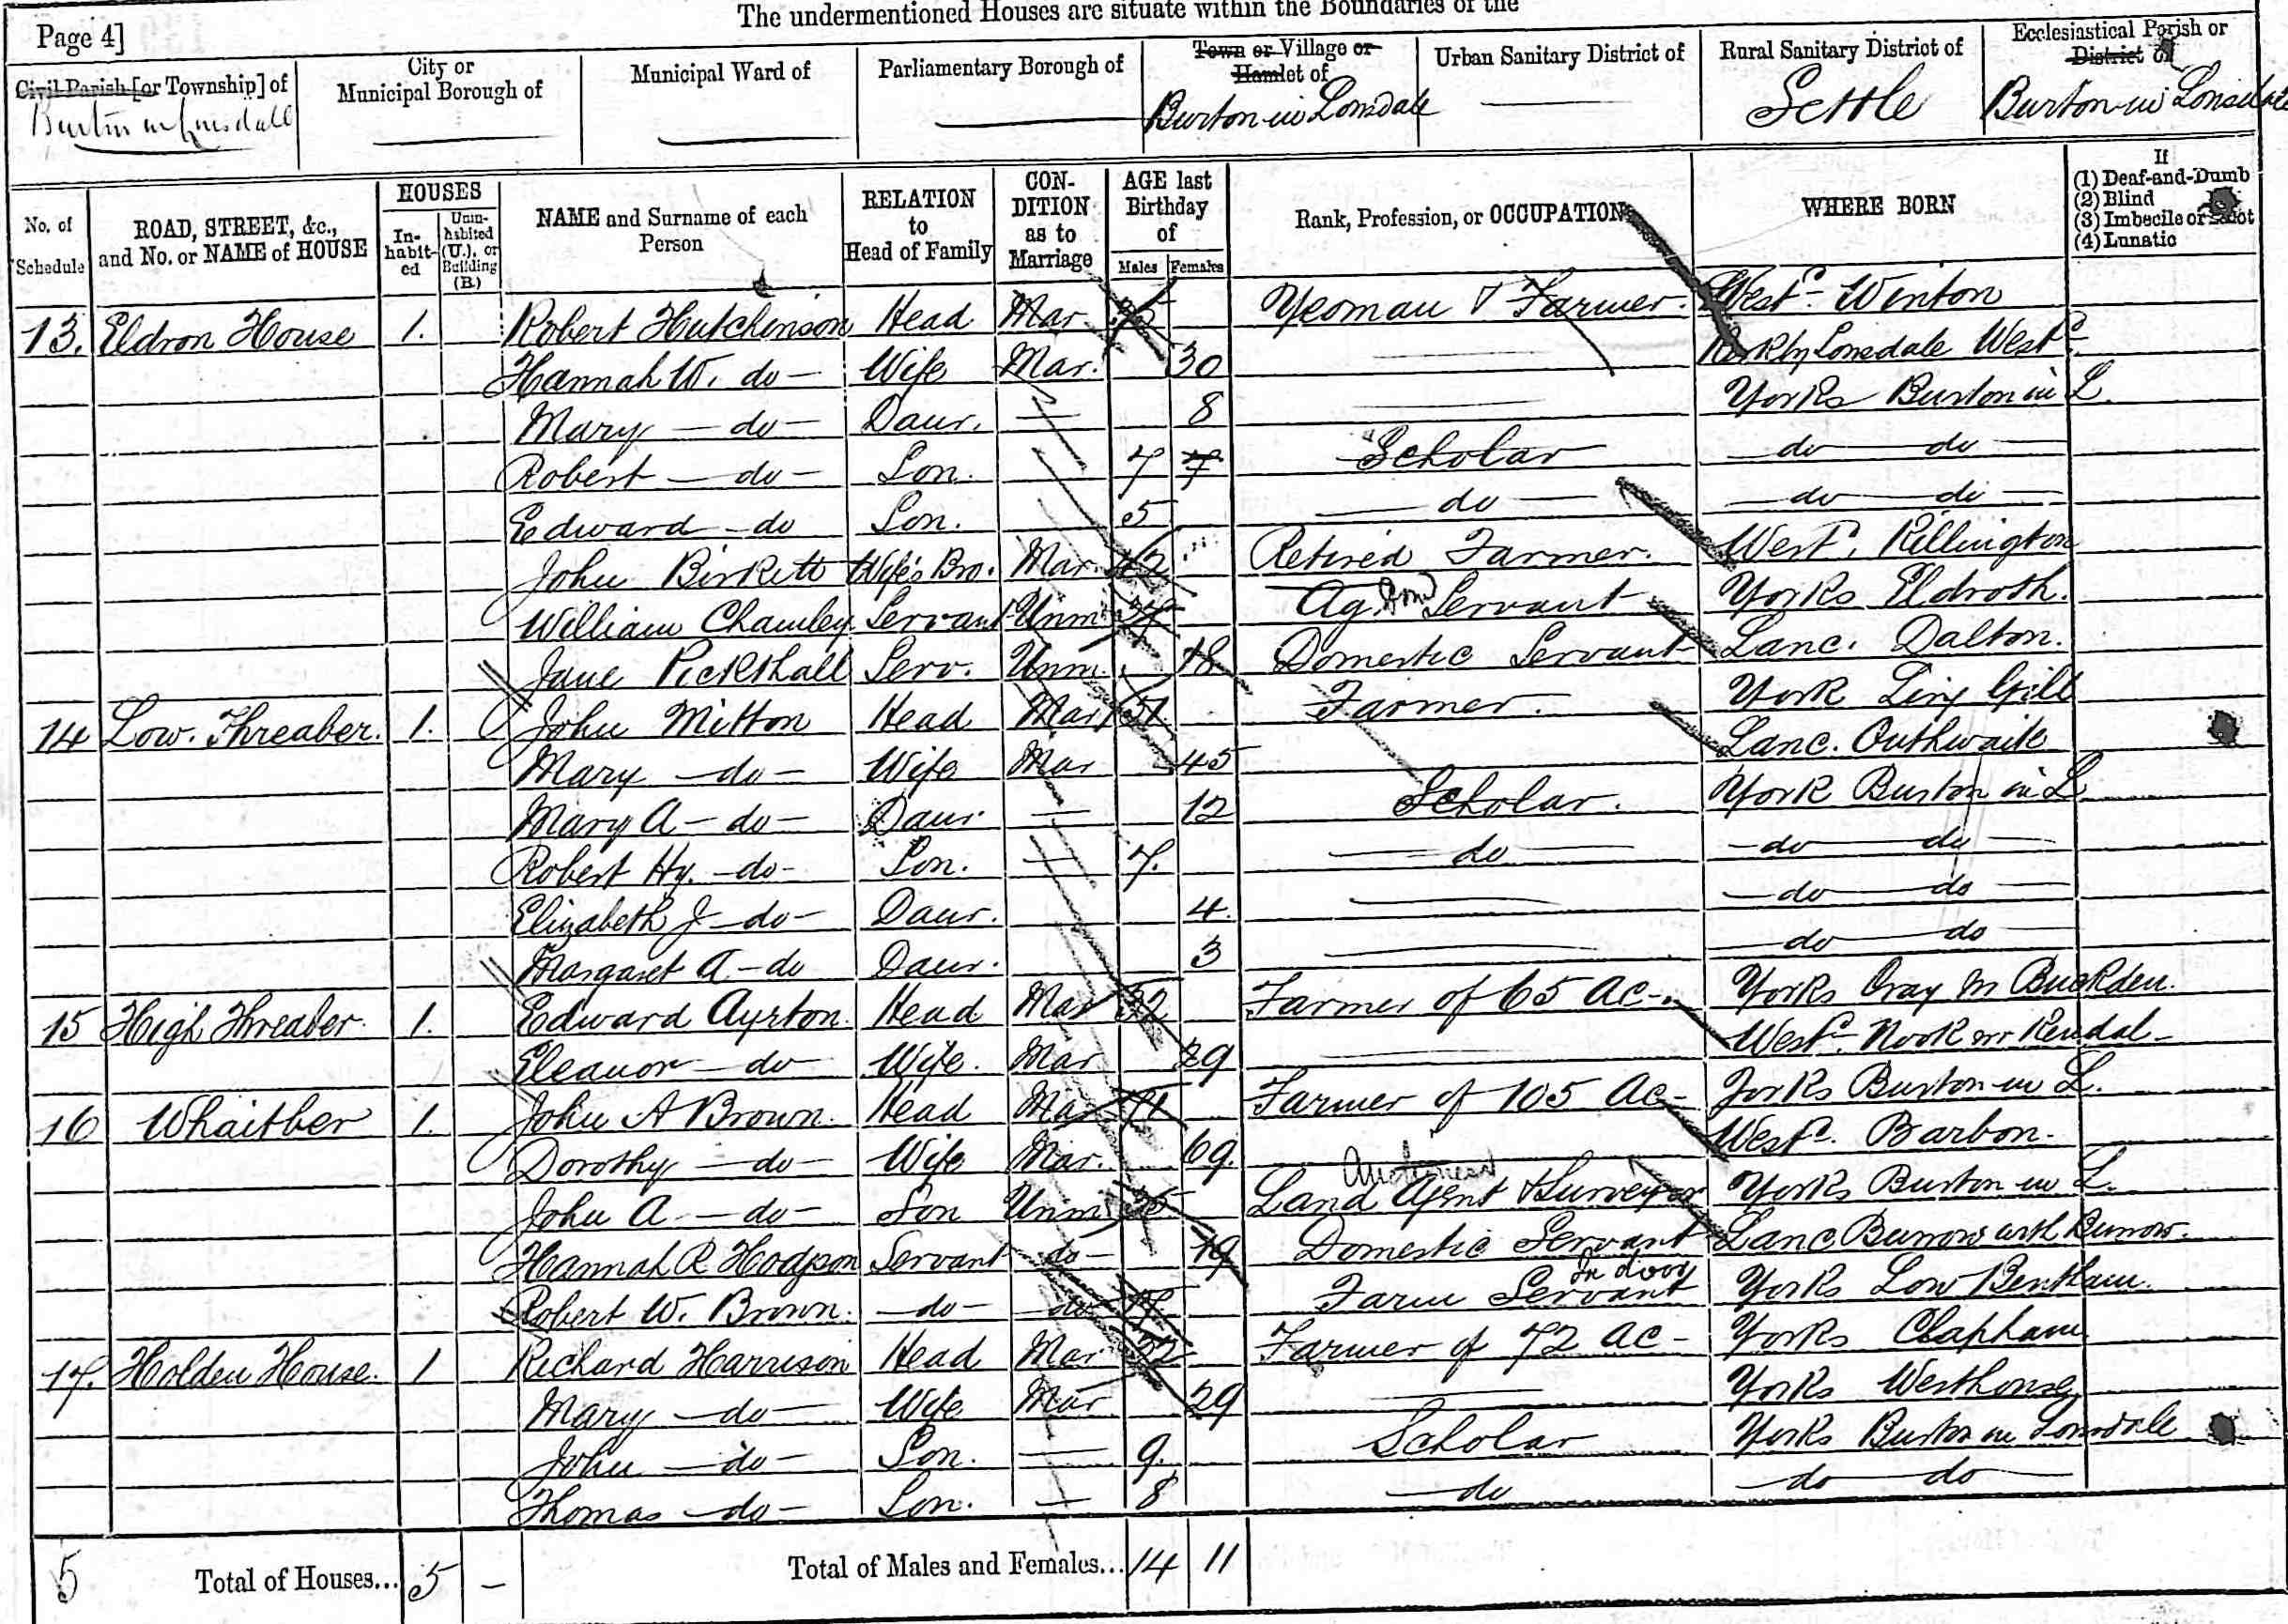 The undermentioned Houses are situate within the Boundaries of the
Page 4]
Civil Parish [or Township] of
Burton in Lonsdale
City or Municipal Borough of
Municipal Ward of
Parliamentary Borough of
Town or Village or Hamlet of
Burton in Lonsdale
Urban Sanitary District of
Rural Sanitary District of
Settle
Ecclesiastical Parish or District of
Burton in Lonsdale
No. of Schedule
ROAD, STREET, &c., and No. or NAME of HOUSE
HOUSES
In-habit-ed
Unin-habited (U.), or Building (B.)
NAME and Surname of each Person
RELATION to Head of Family
CON-DITION as to Marriage
AGE last Birthday of
Males Females
Rank, Profession, or OCCUPATION
WHERE BORN
If
(1) Deaf-and-Dumb
(2) Blind
(3) Imbecile or Idiot
(4) Lunatic
13. Eldron House 1. Robert Hutchinson Head Mar Yeoman & Farmer. West^d Winton
Hannah W. do Wife Mar. 30 Kirkby Lonsdale West^d
Mary do Daur. 8 Yorks Burton in L.
Robert do Son. 7 7 Scholar do do
Edward do Son. 5 do do do
John Birkett Wife's Bro. Mar 42 Retired Farmer. West^d. Killington
William Chamley Servant Unm Ag Dom Servant Yorks Eldroth.
Jane Pickthall Serv. Unm. 18 Domestic Servant Lanc. Dalton.
14 Low. Threaber. 1. John Mitton Head Mar 51 Farmer. York Ling Gill
Mary do Wife Mar 45 Lanc. Outhwaite
Mary A do Daur. 12 Scholar. York Burton in L
Robert Hy. do Son. 7. do do do
Elizabeth J do Daur. 4. do do
Margaret A do Daur. 3 do do
15 High Threaber. 1. Edward Ayrton. Head Mar 32 Farmer of 65 Ac Yorks Cray nr Buckden.
Eleanor do Wife. Mar 29 West^d. Nook nr Kendal
16 Whaitber 1. John A Brown. Head Mar 71 Farmer of 105 Ac Yorks Burton in L.
Dorothy do Wife Mar. 69. West^d. Barbon.
Auctioneer
John A do Son Unm Land Agent & Surveyor Yorks Burton in L.
Hannah R Hodgson Servant do 19 Domestic Servant Lanc Burrow with Burrow.
In door
Robert W. Brown. do do Farm Servant Yorks Low Bentham.
17. Holden House. 1 Richard Harrison Head Mar 32 Farmer of 72 Ac Yorks Clapham
Mary do Wife Mar 29 Yorks Westhouse
John do Son. 9. Scholar Yorks Burton in Lonsdale
Thomas do Son. 8 do do do
5 Total of Houses... 5 Total of Males and Females... 14 11